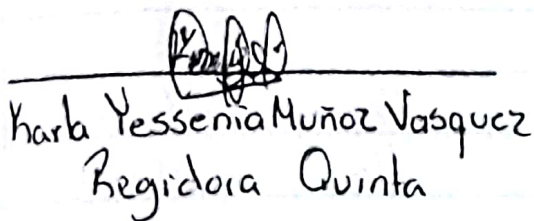 Karla Yessenia Muñoz Vasquez
Regidora Quinta